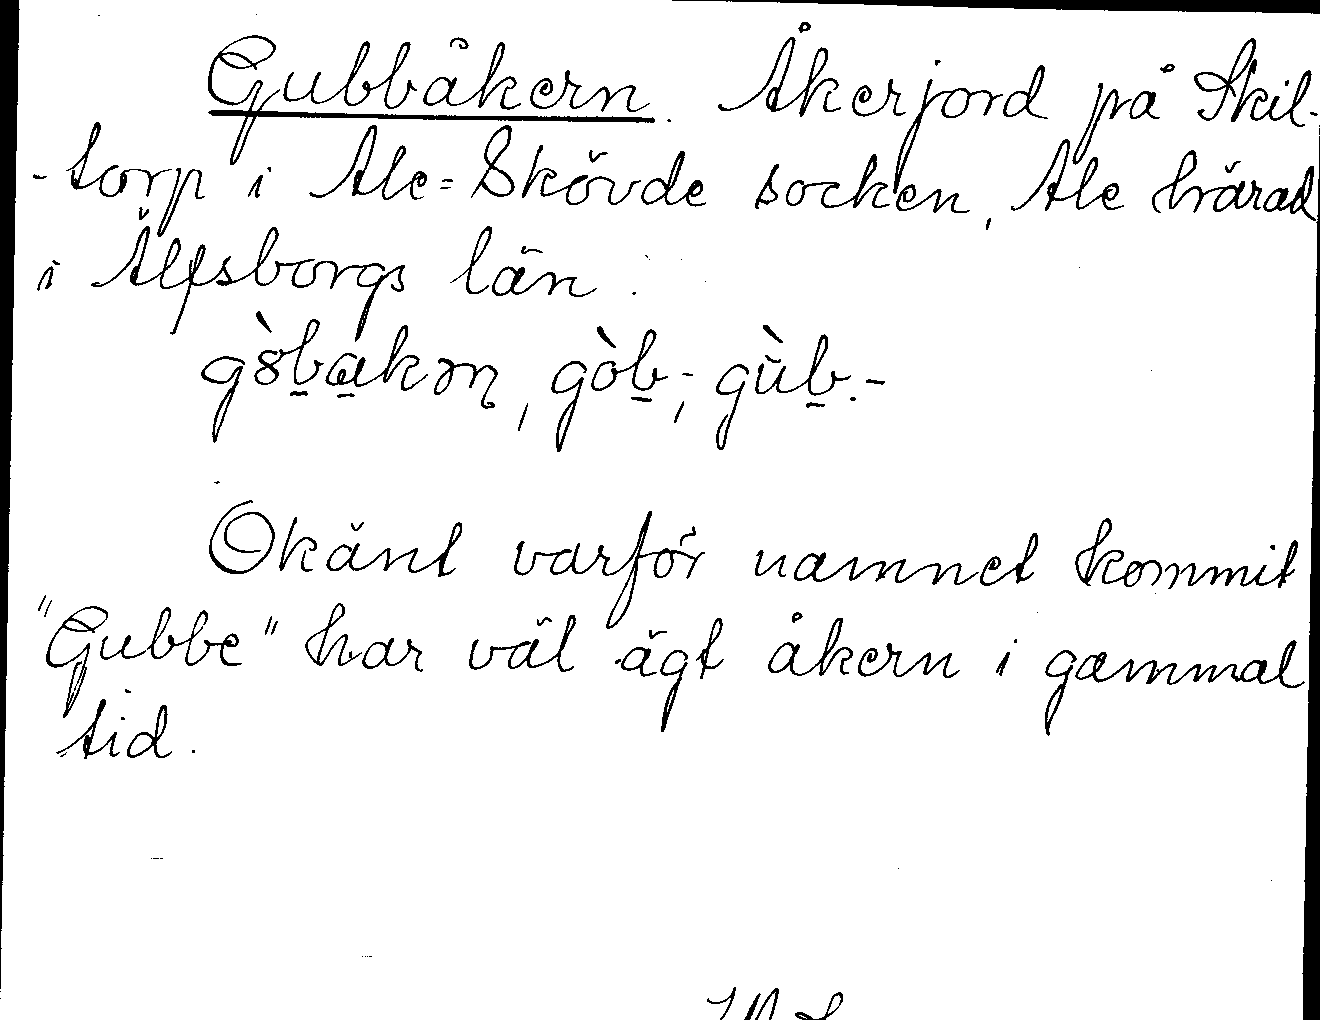 Gubbåkern. Åkerjord på Skil-
-torp i Ale=Skövde socken, Ale härad
i Älfsborgs län.
gòbakən, gòb-, gùb.-
Okänt varför namnet kommit
"Gubbe" har väl ägt åkern i gammal
tid.